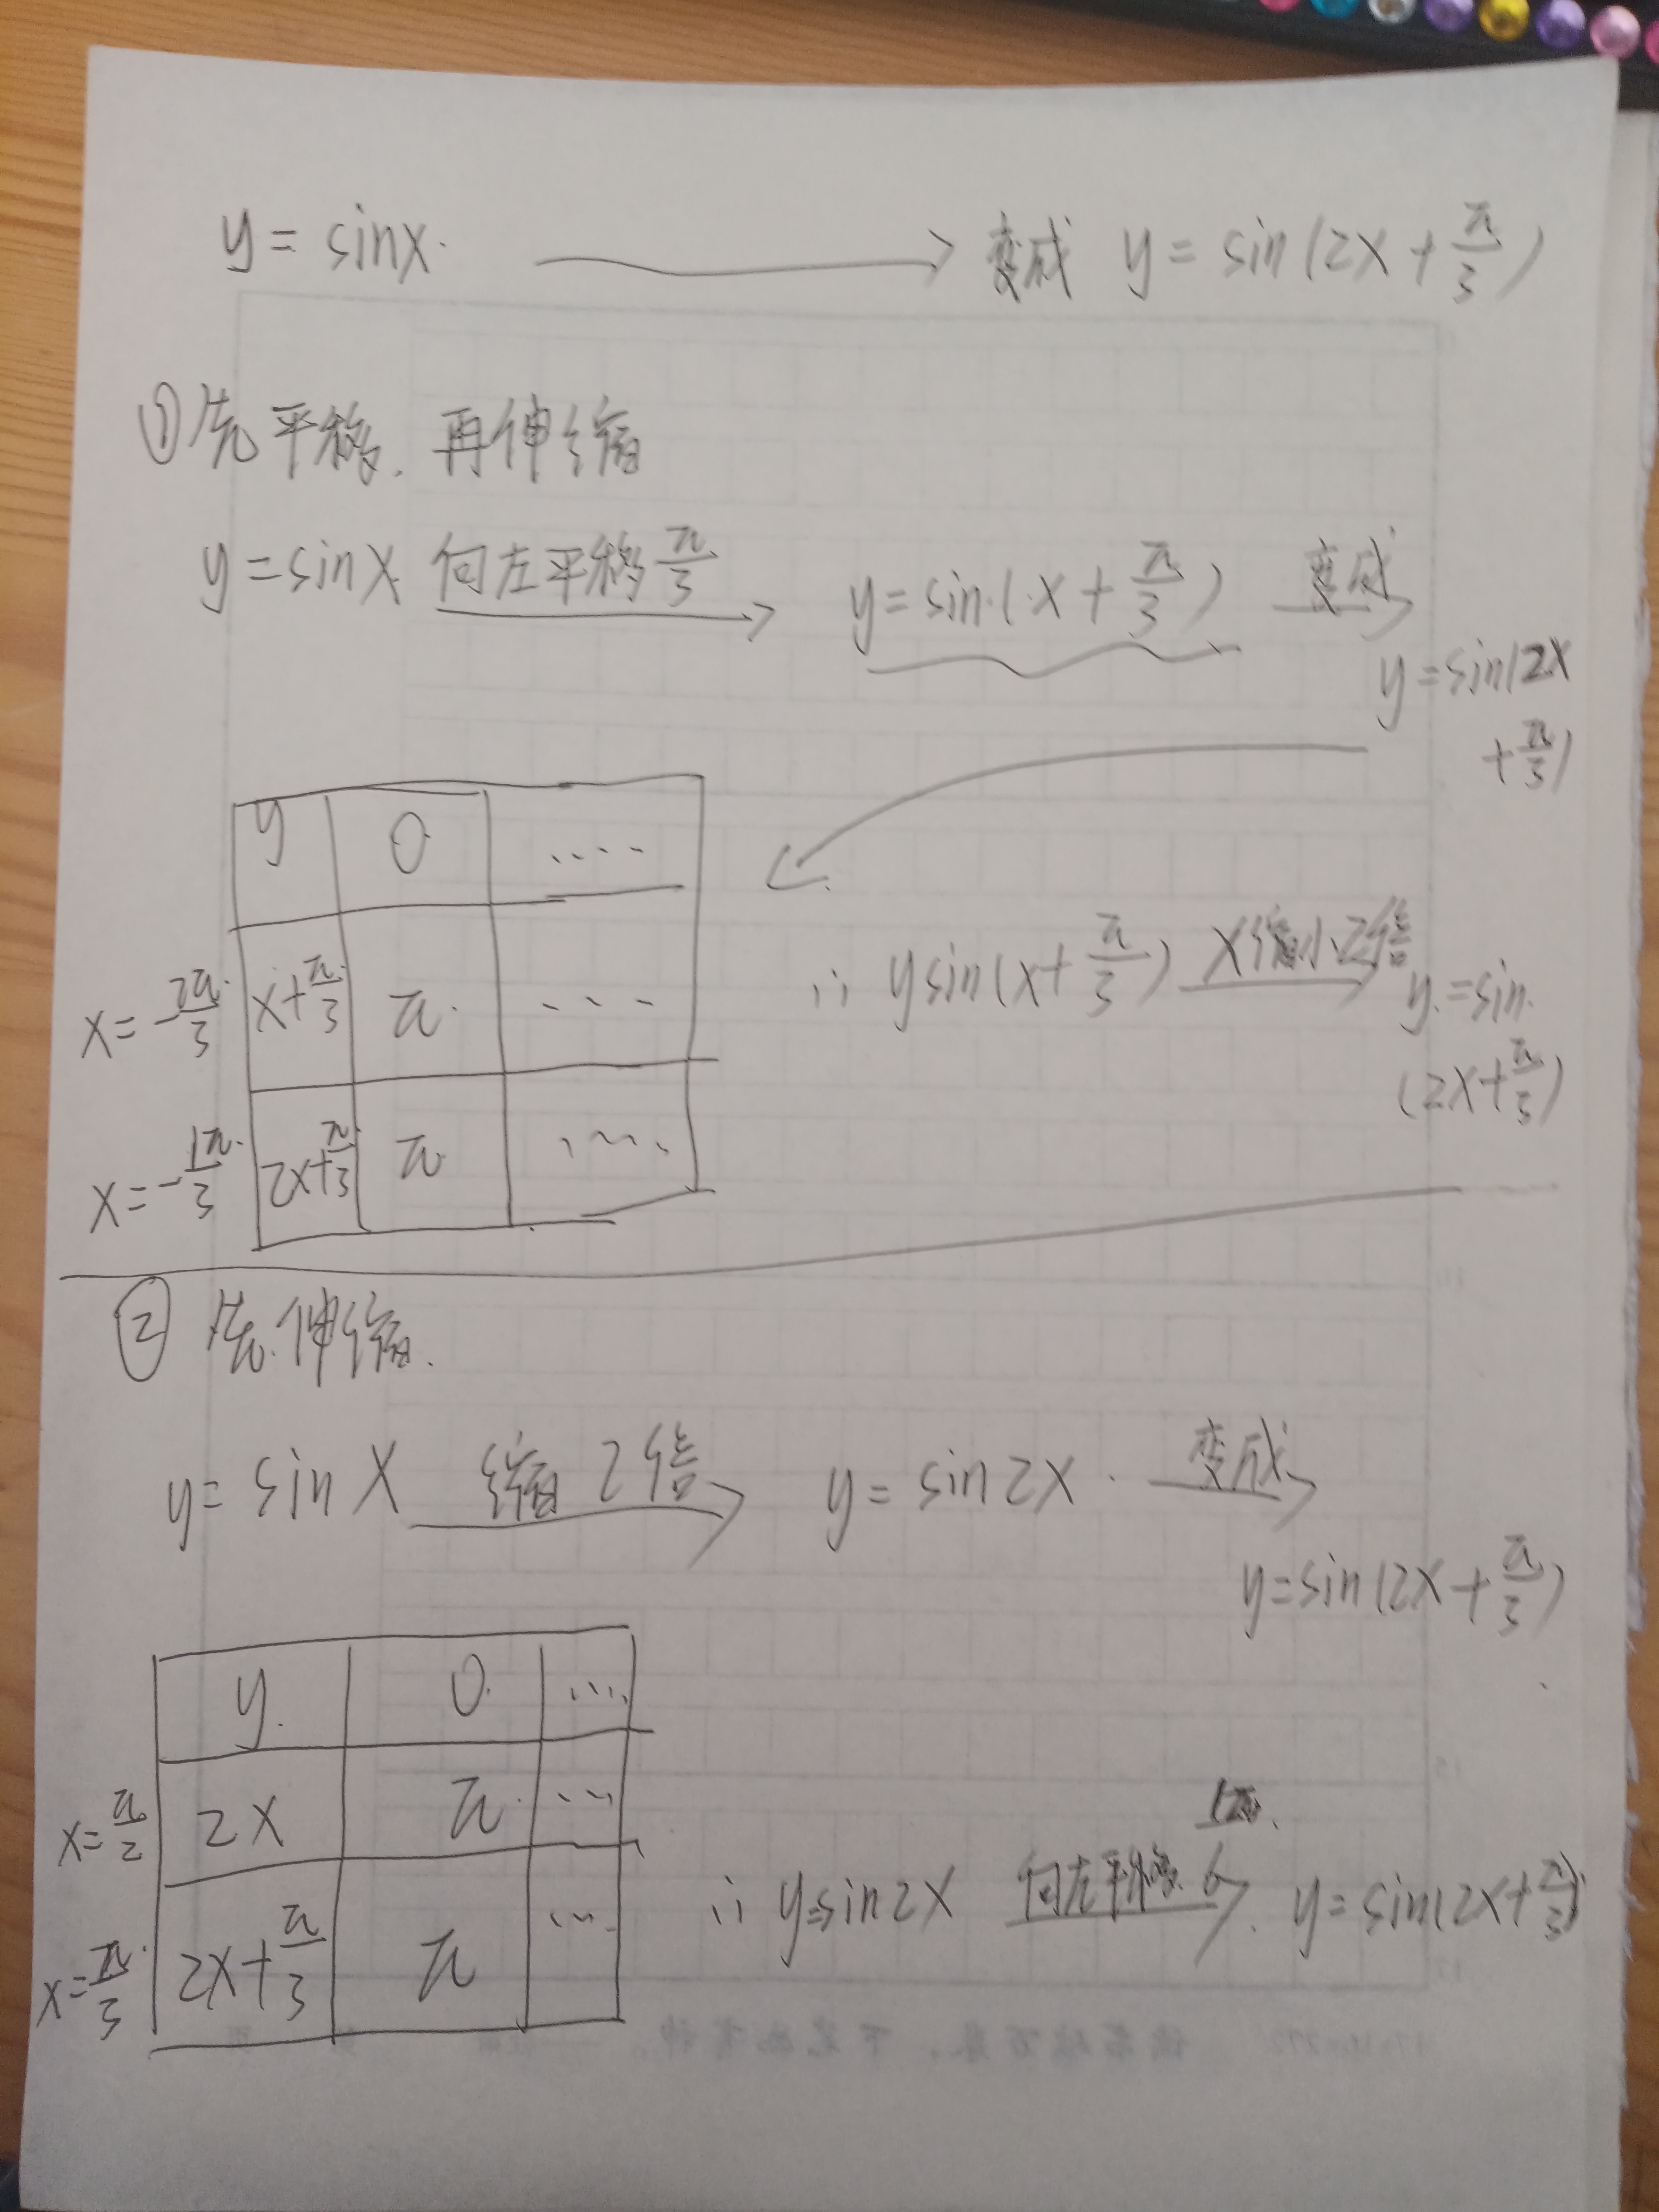 y = sinx. → 变成 y = sin(2x + π/3)
① 先平移. 再伸缩
y = sin x 向左平移 π/3 → y = sin(x + π/3) 变成 →
y = sin(2x
+ π/3)
y 0 ....
x = -2π/3 x + π/3 π ...
∴ y sin(x + π/3) x缩小2倍 → y = sin
(2x + π/3)
x = -1π/3 2x + π/3 π ....
② 先伸缩.
y = sin x 缩2倍 → y = sin 2x. 变成 →
y = sin(2x + π/3)
y. 0. ....
x = π/2 2x π ...
x = π/3 2x + π/3 π ...
∴ y = sin 2x 向左平移 1π/6 → y = sin(2x + π/3)